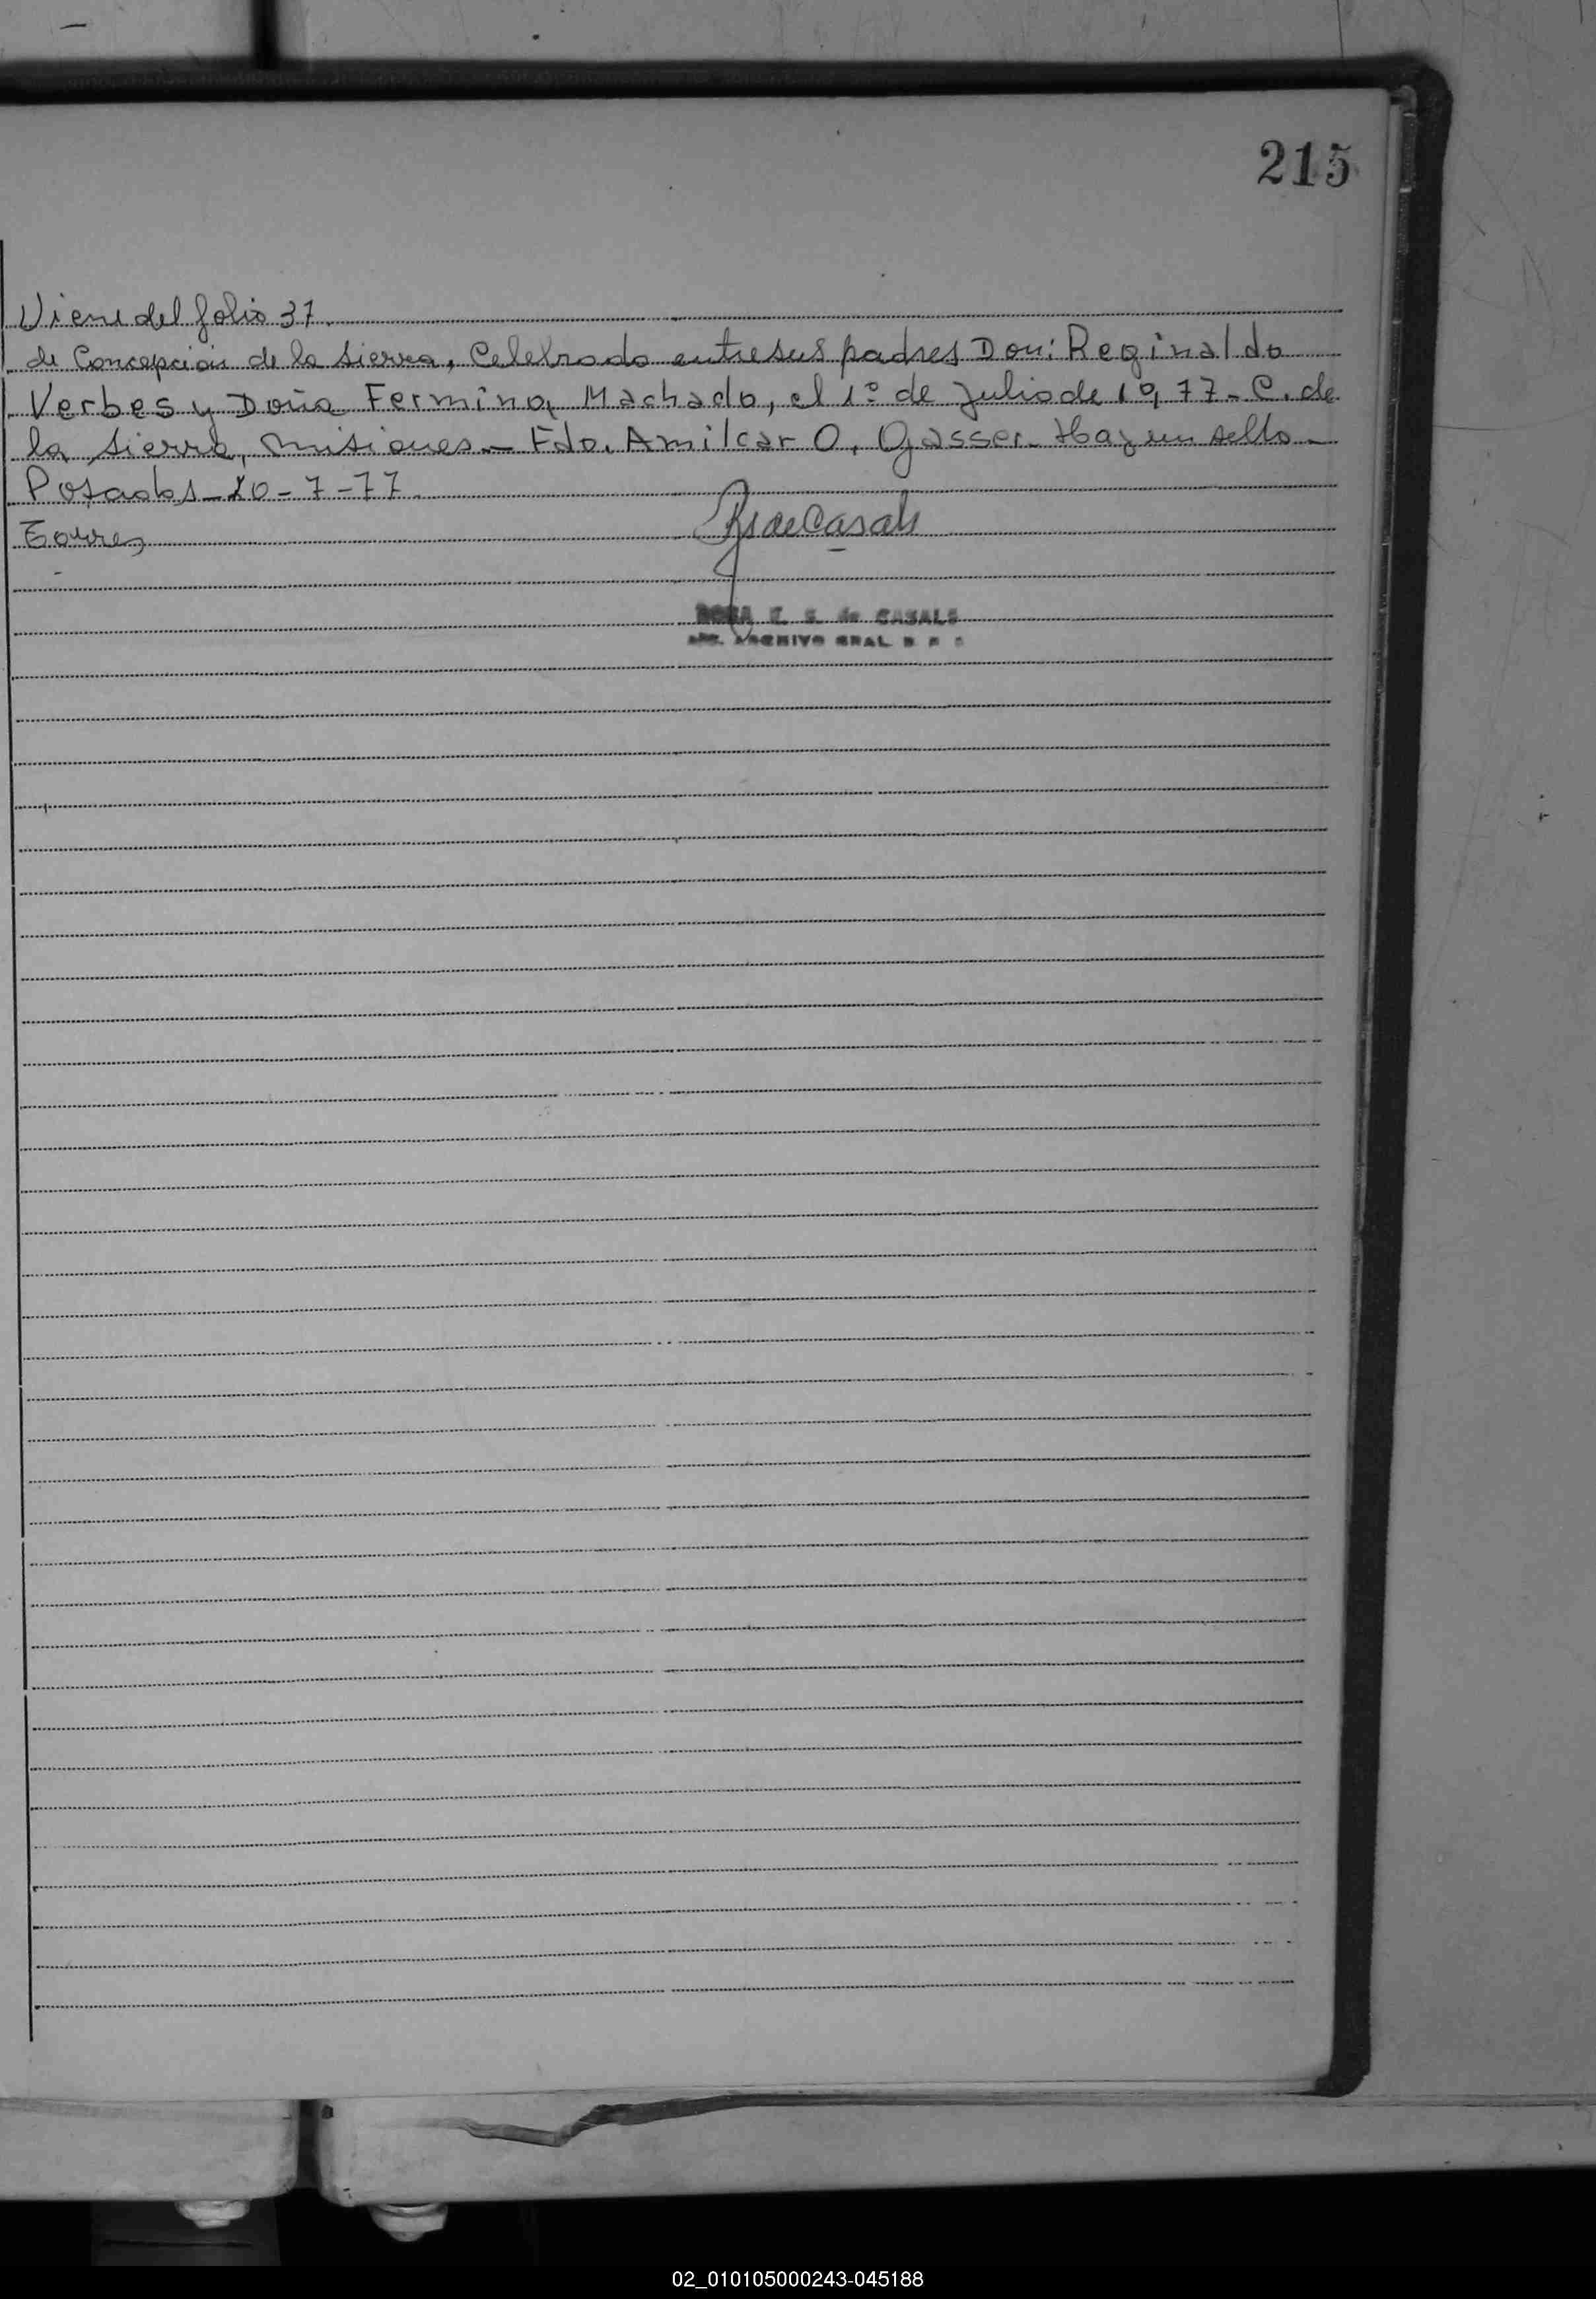 215
Viene del folio 37.
de Concepción de la Sierra, Celebrado entre sus padres Don: Reginaldo
Verbes y Doña Fermina Machado, el 1º de Julio de 1977 - C. de
la Sierra, Misiones - Fdo. Amilcar O. Gasser. Hay un sello -
Posadas - 20 - 7 - 77
Torres
de Casals
ROSA E. S. de CASALS
ARCHIVO GRAL
02_010105000243-045188